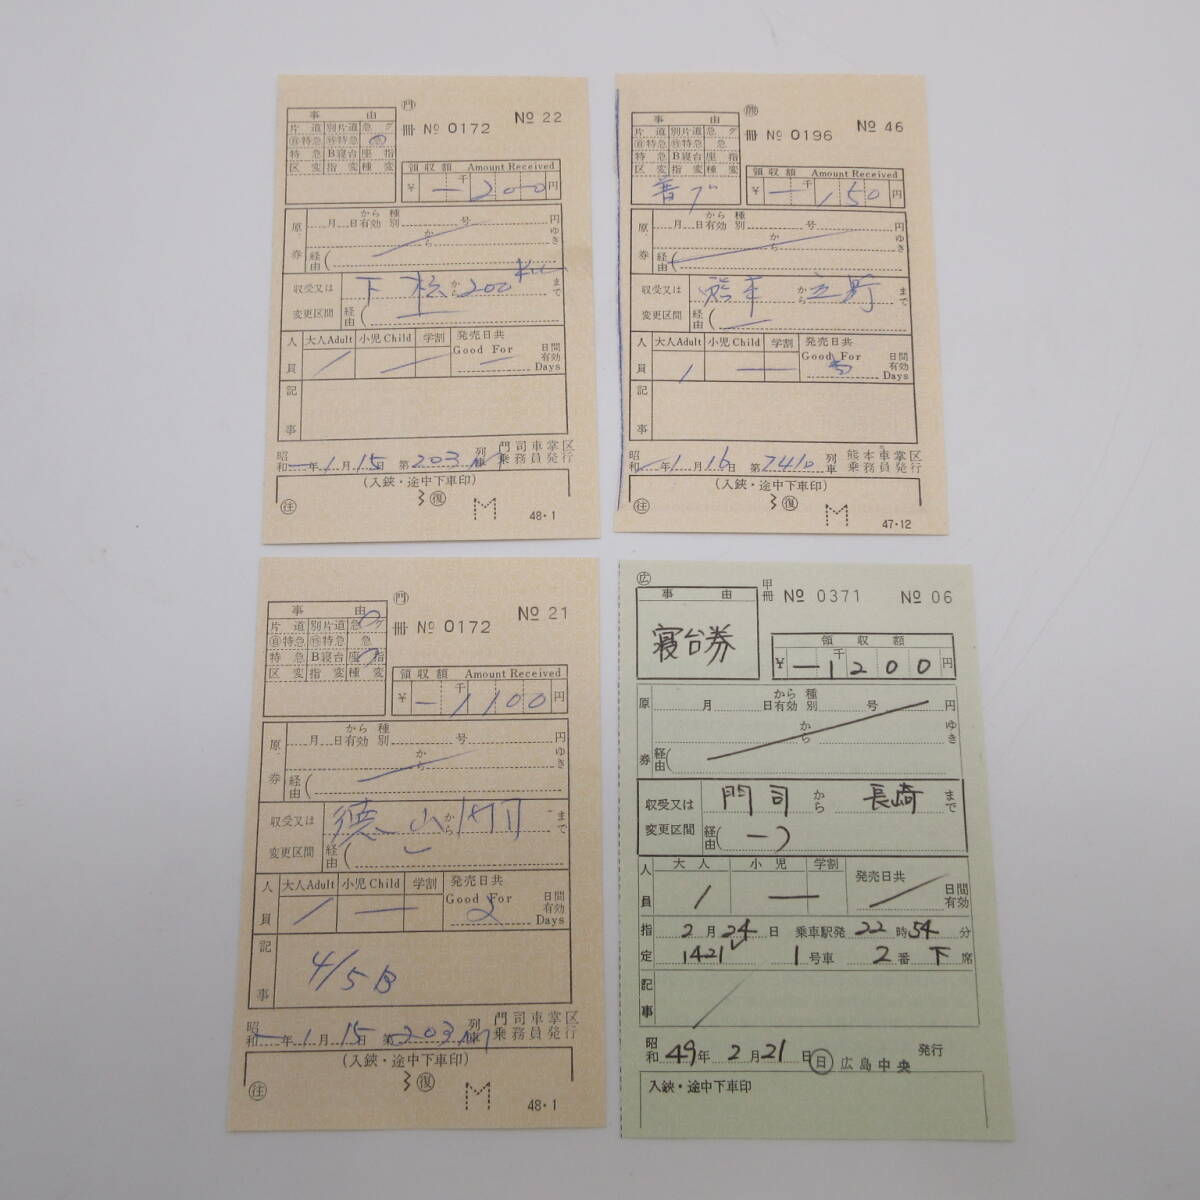 門
事 由
冊 № 0172 № 22
片道 別片道 急グ
自特急 特特急 急
特急 B寝台 座指
区変 指変 種変
領収額 Amount Received
¥ 一 千 200 円
原券
月 日から有効 種別 号 円
から ゆき
経由(
収受又は変更区間
下松から200Kmまで
経由(
人員 大人Adult 小児Child 学割 発売日共
Good For 日間有効 Days
記事
昭和 年 1月15日 第203M列車 門司車掌区乗務員発行
(入鋏・途中下車印)
注 3復 M 48・1
熊
事 由
冊 № 0196 № 46
片道 別片道 急グ
自特急 特特急 急
特急 B寝台 座指
区変 指変 種変
普グ
領収額 Amount Received
¥ 一 千 150 円
原券
月 日から有効 種別 号 円
から ゆき
経由(
収受又は変更区間
熊本から立野まで
経由(
人員 大人Adult 小児Child 学割 発売日共
1 Good For 日間有効 Days
記事
昭和 年 1月16日 第7410列車 熊本車掌区乗務員発行
(入鋏・途中下車印)
3復 M 47・12
門
事 由
冊 № 0172 № 21
片道 別片道 急グ
自特急 特特急 急
特急 B寝台 座指
区変 指変 種変
領収額 Amount Received
¥ 一 千 1100 円
原券
月 日から有効 種別 号 円
から ゆき
経由(
収受又は変更区間
徳山から まで
経由(
人員 大人Adult 小児Child 学割 発売日共
1 Good For 2 日間有効 Days
記事
4/5B
昭和 年 1月15日 第203M列車 門司車掌区乗務員発行
(入鋏・途中下車印)
注 3復 M 48・1
広
事 由
甲冊 № 0371 № 06
寝台券
領収額
¥ 一 千 1200 円
原券
月 日から有効 種別 号 円
から ゆき
経由(
収受又は変更区間
門司から長崎まで
経由(一)
人員 大人 小児 学割 発売日共
1 日間有効
指定 2月24日 乗車駅発22時54分
1421 1号車 2番下席
記事
昭和49年2月21日 日 広島中央 発行
入鋏・途中下車印